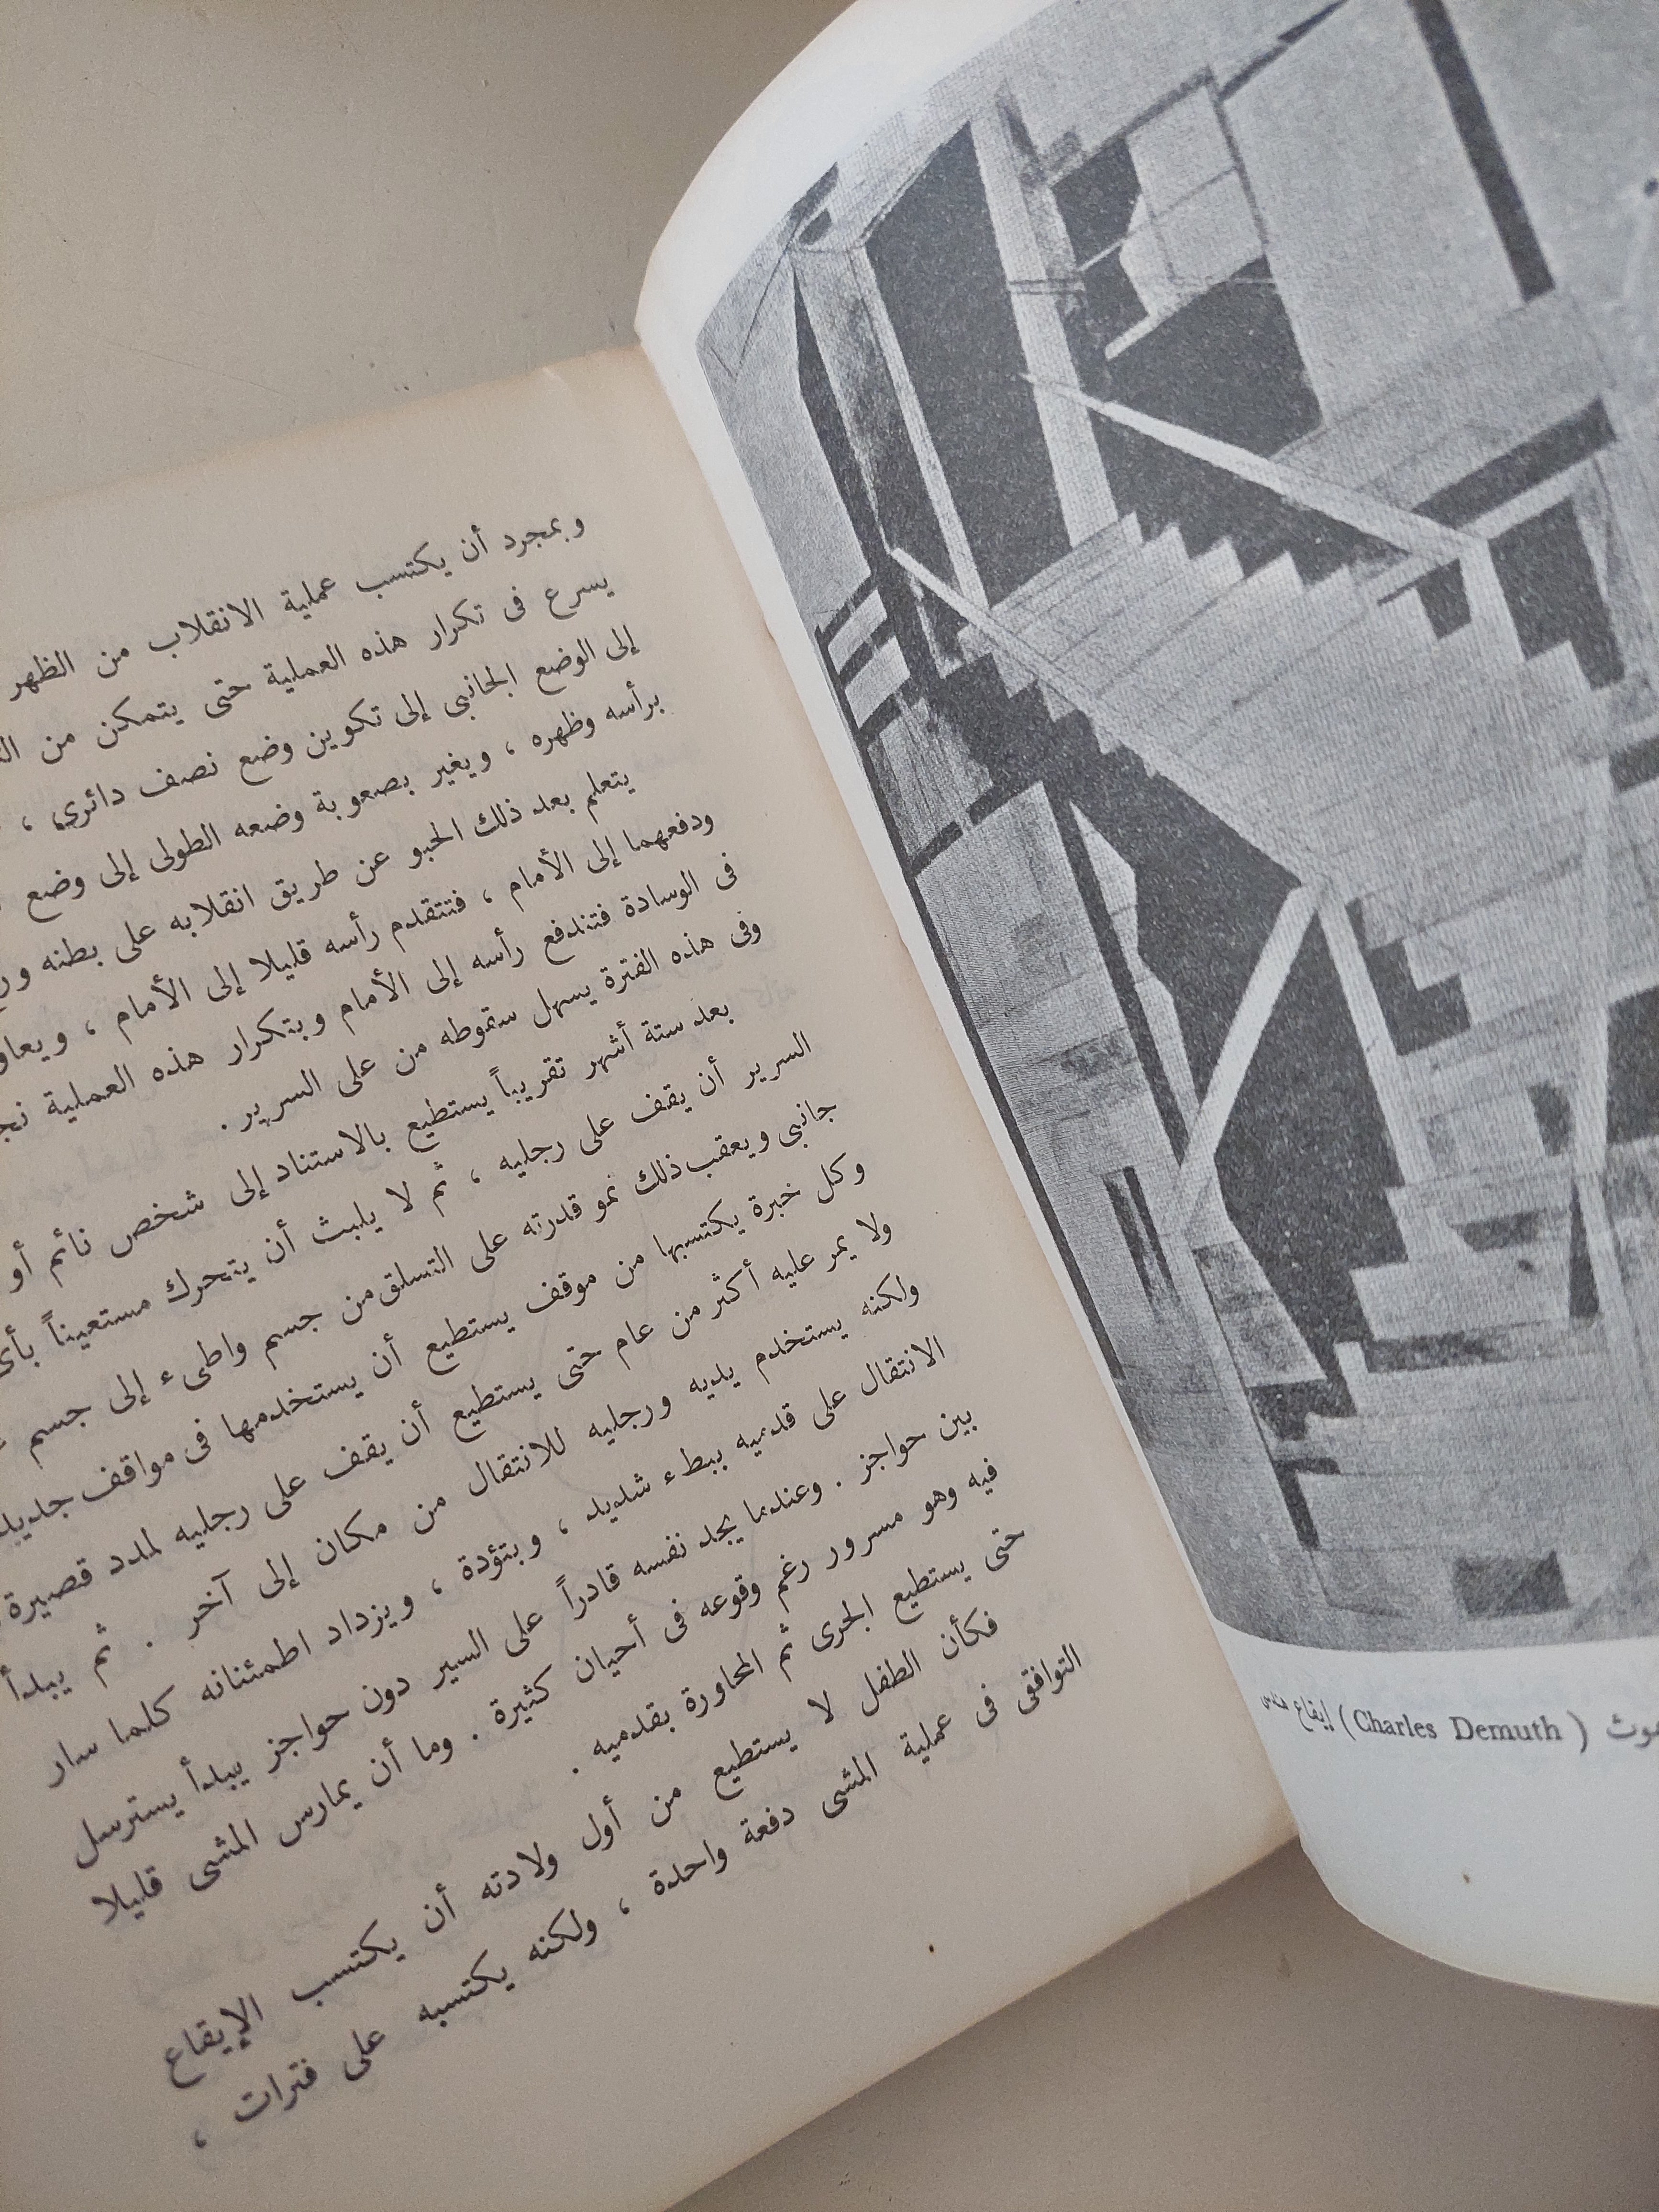 وبمجرد أن يكتسب عملية الانقلاب من الظهر
يسرع فى تكرار هذه العملية حتى يتمكن من
إلى الوضع الجانبى إلى تكوين وضع نصف دائرى ،
برأسه وظهره ، ويغير بصعوبة وضعه الطولى إلى وضع
يتعلم بعد ذلك الحبو عن طريق انقلابه على بطنه
ودفعهما إلى الأمام ، فتتقدم رأسه قليلا إلى الأمام ،
فى الوسادة فتندفع رأسه إلى الأمام وبتكرار هذه العملية
وفى هذه الفترة يسهل سقوطه من على السرير .
بعد ستة أشهر تقريباً يستطيع بالاستناد إلى شخص نائم أو
السرير أن يقف على رجليه ، ثم لا يلبث أن يتحرك مستعيناً بأى
جانبى ويعقب ذلك نمو قدرته على التسلق من جسم واطىء إلى جسم
وكل خبرة يكتسبها من موقف يستطيع أن يستخدمها فى مواقف
ولا يمر عليه أكثر من عام حتى يستطيع أن يقف على رجليه لمدد قصيرة
ولكنه يستخدم يديه ورجليه للانتقال من مكان إلى آخر . ثم يبدأ
الانتقال على قدميه ببطء شديد ، وبتؤدة ، ويزداد اطمئنانه كلما سار
بين حواجز . وعندما يجد نفسه قادراً على السير دون حواجز يبدأ يسترسل
فيه وهو مسرور رغم وقوعه فى أحيان كثيرة . وما أن يمارس المشى قليلا
حتى يستطيع الجرى ثم المحاورة بقدميه .
فكأن الطفل لا يستطيع من أول ولادته أن يكتسب الإيقاع
التوافقى فى عملية المشى دفعة واحدة ، ولكنه يكتسبه على فترات ،
(Charles Demuth) إيقاع هندسى